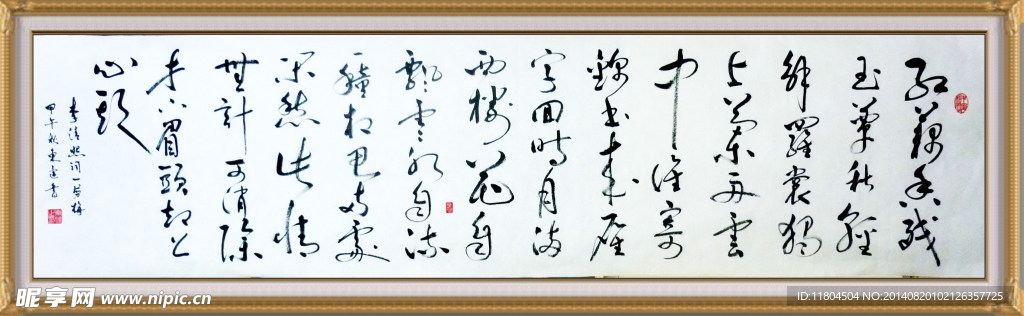 红藕香残
玉簟秋轻
解羅裳独
上兰舟云
中谁寄
锦书来雁
字回时月满
西楼花自
飘零水自流
一種相思两處
闲愁此情
無計可消除
才下眉頭却上
心头
李清照词一剪梅
甲午秋書
昵享网 www.nipic.cn
ID:11804504 NO:20140820102126357725